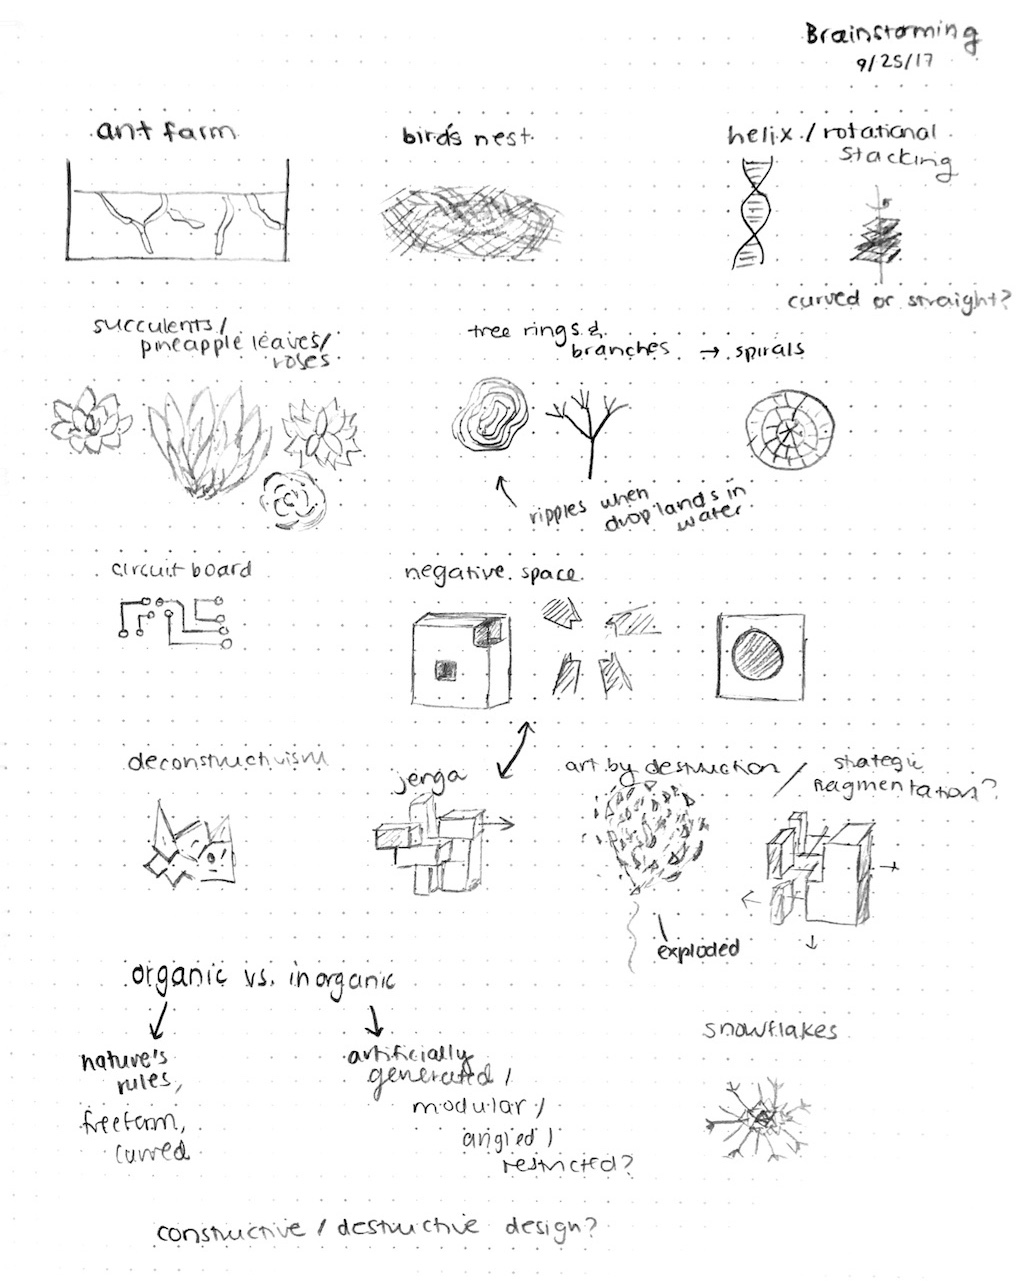 Brainstorming
9/25/17
ant farm
bird's nest
helix / rotational
stacking
curved or straight?
succulents/
pineapple leaves/
roses
tree rings &
branches → spirals
ripples when
drop lands in
water
circuit board
negative space
deconstructivism
jenga
art by destruction / strategic
fragmentation?
exploded
organic vs. inorganic
nature's
rules,
freeform,
curved
artificially
generated /
modular /
angled /
restricted?
snowflakes
constructive / destructive design?